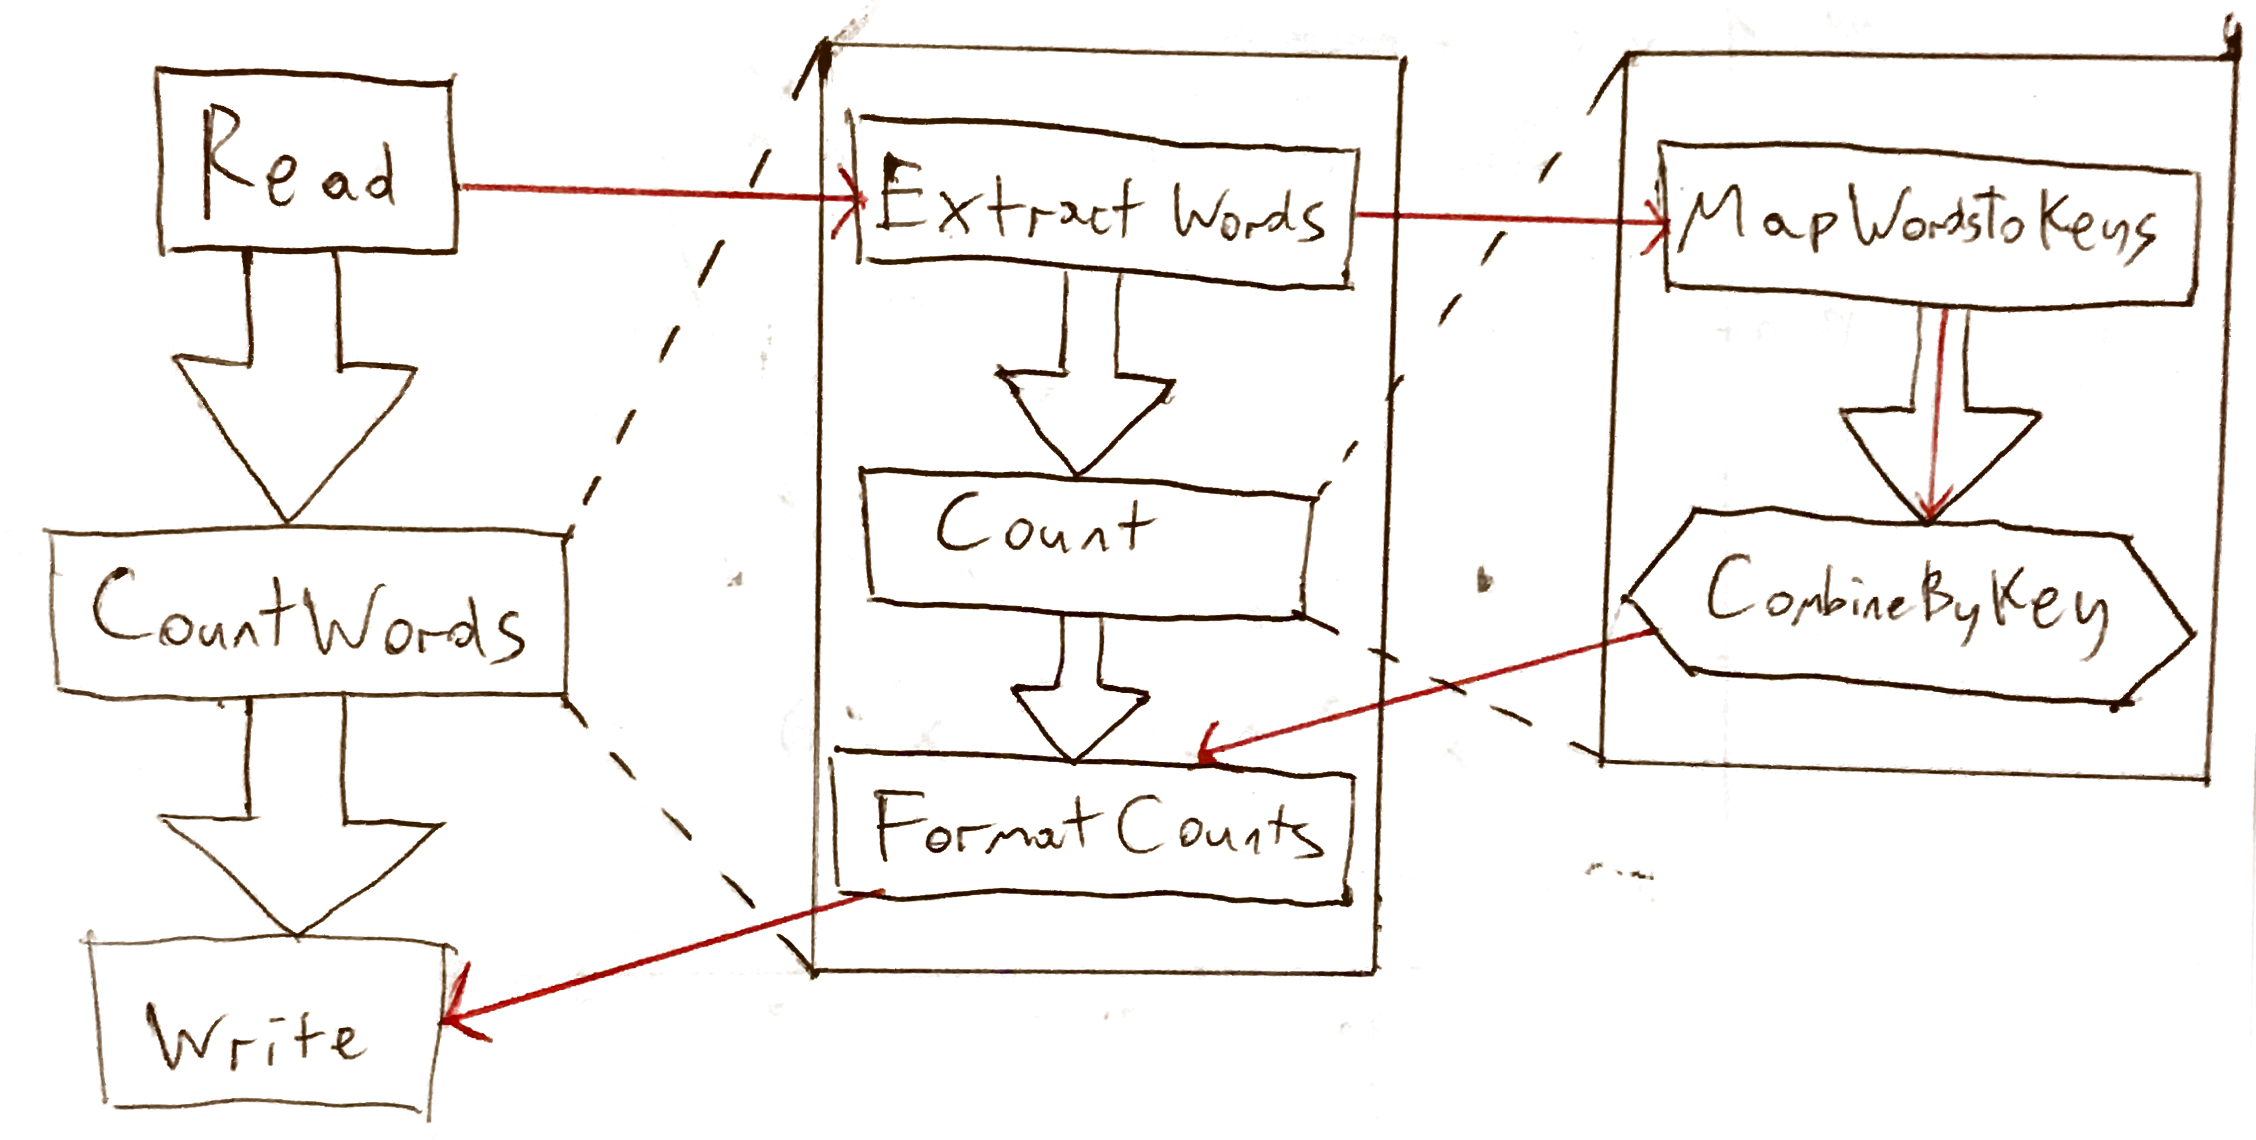 Read
CountWords
Write
Extract Words
Count
Format Counts
MapWordstoKeys
CombineByKey